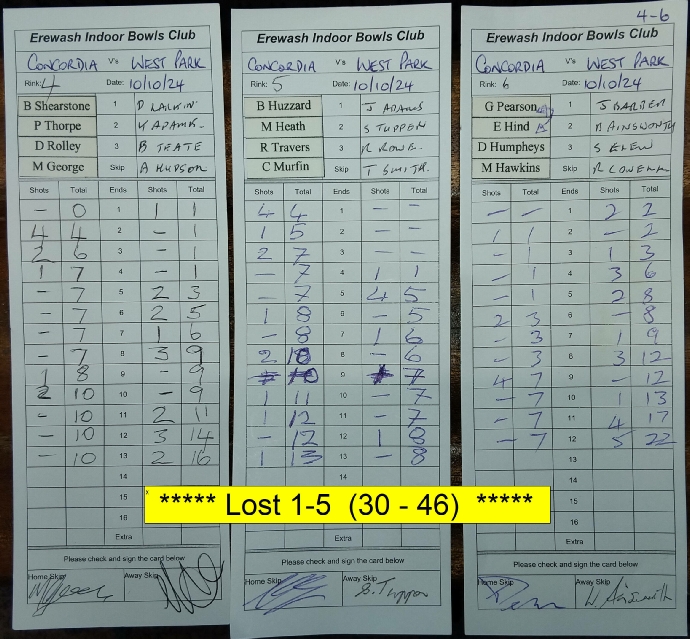 4-6
Erewash Indoor Bowls Club
CONCORDIA V's WEST PARK
Rink: 4 Date: 10/10/24
B Shearstone 1 D LARKIN
P Thorpe 2 K ADAMS
D Rolley 3 B TEATE
M George Skip A HUDSON
Shots Total Ends Shots Total
- 0 1 1 1
4 4 2 - 1
2 6 3 - 1
1 7 4 - 1
- 7 5 2 3
- 7 6 2 5
- 7 7 1 6
- 7 8 3 9
1 8 9 - 9
2 10 10 - 9
- 10 11 2 11
- 10 12 3 14
- 10 13 2 16
14
15
16
Extra
Please check and sign the card below
Home Skip Away Skip
Erewash Indoor Bowls Club
CONCORDIA V's WEST PARK
Rink: 5 Date: 10/10/24
B Huzzard 1 J ADAMS
M Heath 2 S TUPPEN
R Travers 3 R ROWE
C Murfin Skip T SMITH
Shots Total Ends Shots Total
4 4 1 - -
1 5 2 - -
2 7 3 - -
- 7 4 1 1
- 7 5 4 5
1 8 6 - 5
- 8 7 1 6
2 10 8 - 6
10 9 7
1 11 10 - 7
1 12 11 - 7
- 12 12 1 8
1 13 13 - 8
14
Extra
Please check and sign the card below
Home Skip Away Skip
S. Tuppen
Erewash Indoor Bowls Club
CONCORDIA V's WEST PARK
Rink: 6 Date: 10/10/24
G Pearson 1 J BARBER
E Hind 2 AINSWORTH
D Humpheys 3 S
M Hawkins Skip R
Shots Total Ends Shots Total
- - 1 2 2
1 1 2 - 2
- 1 3 1 3
- 1 4 3 6
- 1 5 2 8
2 3 6 - 8
- 3 7 1 9
- 3 8 3 12
4 7 9 - 12
- 7 10 1 13
- 7 11 4 17
- 7 12 5 22
13
14
15
16
Extra
Please check and sign the card below
Home Skip Away Skip
***** Lost 1-5 (30 - 46) *****